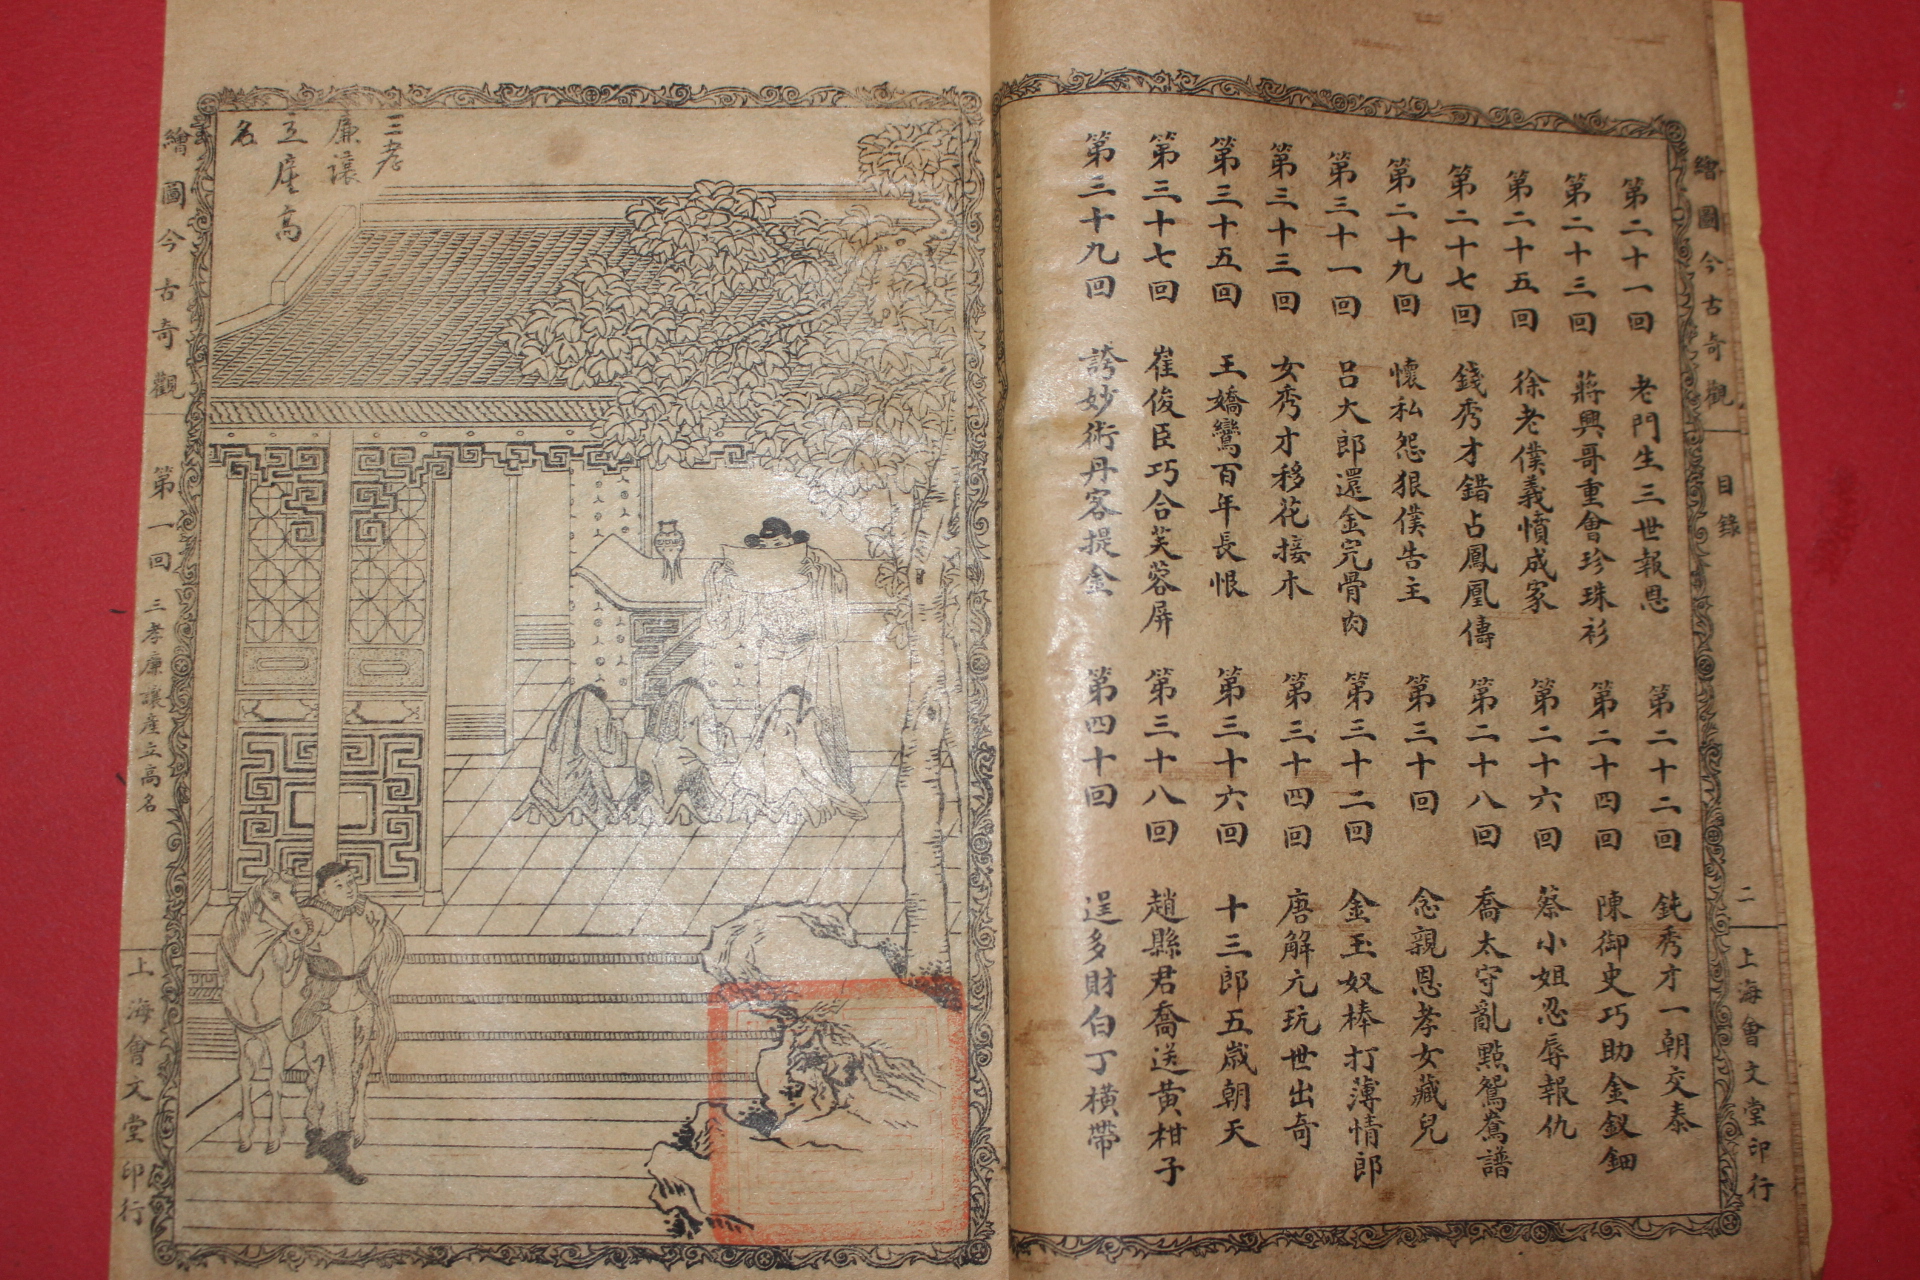 繪圖今古奇觀 目錄 二 上海會文堂印行
第二十一回 老門生三世報恩
第二十二回 鈍秀才一朝交泰
第二十三回 蔣興哥重會珍珠衫
第二十四回 陳御史巧助金釵鈿
第二十五回 徐老僕義憤成家
第二十六回 蔡小姐忍辱報仇
第二十七回 錢秀才錯占鳳凰儔
第二十八回 喬太守亂點鴛鴦譜
第二十九回 懷私怨狠僕告主
第三十回 念親恩孝女藏兒
第三十一回 呂大郎還金完骨肉
第三十二回 金玉奴棒打薄情郎
第三十三回 女秀才移花接木
第三十四回 唐解元玩世出奇
第三十五回 王嬌鸞百年長恨
第三十六回 十三郎五歲朝天
第三十七回 崔俊臣巧合芙蓉屏
第三十八回 趙縣君喬送黃柑子
第三十九回 誇妙術丹客提金
第四十回 逞多財白丁橫帶
三孝
廉讓
立產高
名
繪圖今古奇觀 第一回 三孝廉讓產立高名 上海會文堂印行